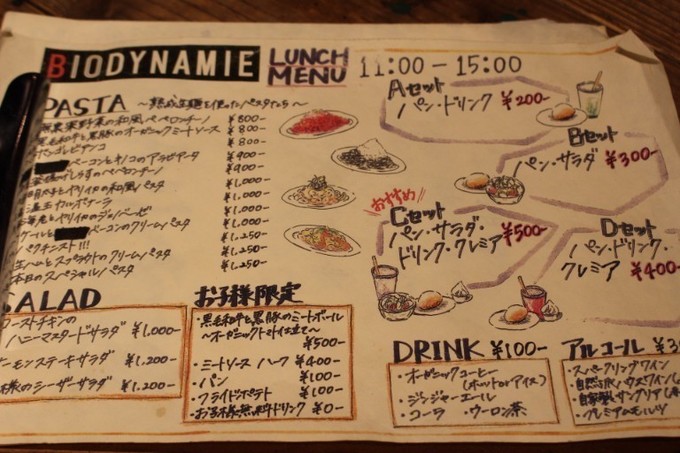 BIODYNAMIE LUNCH MENU 11:00-15:00
PASTA ～熟成生麺を使ったパスタたち～
野菜の和風ペペロンチーノ ¥800-
黒毛和牛と黒豚のオーガニックミートソース ¥800-
ボンゴレビアンコ ¥800-
ベーコンとキノコのアラビアータ ¥900-
しらすのペペロンチーノ ¥900-
明太子とヤリイカの和風パスタ ¥1,000-
温玉カルボナーラ ¥1,000-
海老とヤリイカのジェノベーゼ ¥1,000-
ケールと ベーコンのクリームパスタ ¥1,000-
パクチニスト!!! ¥1,250-
生ハムとスプラウトのクリームパスタ ¥1,250-
本日のスペシャルパスタ ¥1,250-
SALAD
ローストチキンの
ハニーマスタードサラダ ¥1,000-
サーモンステーキサラダ ¥1,200-
のシーザーサラダ ¥1,200-
お子様限定
・黒毛和牛と黒豚のミートボール
～オーガニックトマト仕立て～
¥500-
・ミートソース ハーフ ¥400-
・パン ¥100-
・フライドポテト ¥100-
・お子様無料ドリンク ¥0-
Aセット
パン・ドリンク ¥200-
Bセット
パン・サラダ ¥300-
おすすめ
Cセット
パン・サラダ・
ドリンク・クレミア ¥500-
Dセット
パン・ドリンク・
クレミア ¥400-
DRINK ¥100-
・オーガニックコーヒー
(ホットorアイス)
・ジンジャーエール
・コーラ ・ウーロン茶
アルコール
・スパークリングワイン
・自然派ハウスワイン
・自家製サングリア
・プレミアムモルツ